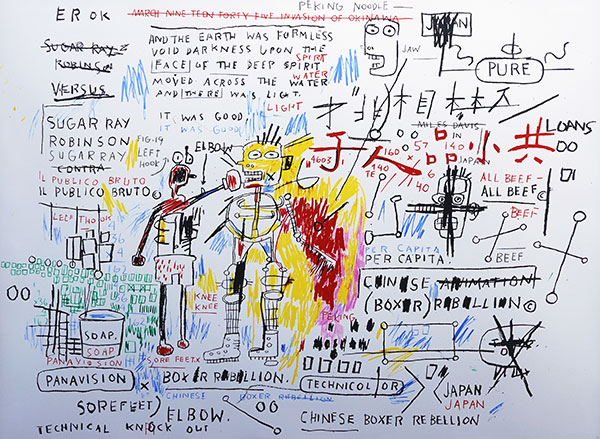 PEKING NOODLE—
EROK
MARCH NINE TEEN FORTY FIVE INVASION OF OKINAWA
JAPAN
SUGAR RAY
ROBINSON
VERSUS
AND THE EARTH WAS FORMLESS
VOID DARKNESS UPON THE
FACE OF THE DEEP SPIRIT
SPIRIT
MOVED ACROSS THE WATER
WATER
AND THERE WAS LIGHT.
LIGHT
JAW
PURE
IT WAS GOOD.
IT WAS GOOD.
SUGAR RAY
ROBINSON
SUGAR RAY
CONTRA
FIG.19
LEFT
HOOK
ELBOW
IL PUBLICO BRUTO
IL PUBLICO BRUTO©
MILES DAVIS
IN
JAPAN
于人品小共
LOANS
4603
160
57
140
40
ALL BEEF—
ALL BEEF©
BEEF
BEEF
PER CAPITA
PER CAPITA.
CHINESE ANIMATION
(BOXER) REBELLION©
KNEE
KNEE
PEKING
SOAP.
SOAP
PANAVISION
PANAVISION
SORE FEET.X
X BOXER REBELLION.
CHINESE
BOXER REBELLION
TECHNICOLOR
JAPAN
JAPAN
SOREFEET)
ELBOW.
TECHNICAL KNOCK OUT
CHINESE BOXER REBELLION